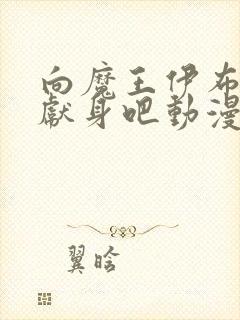 向魔王伊布
獻身吧動漫
翼晗